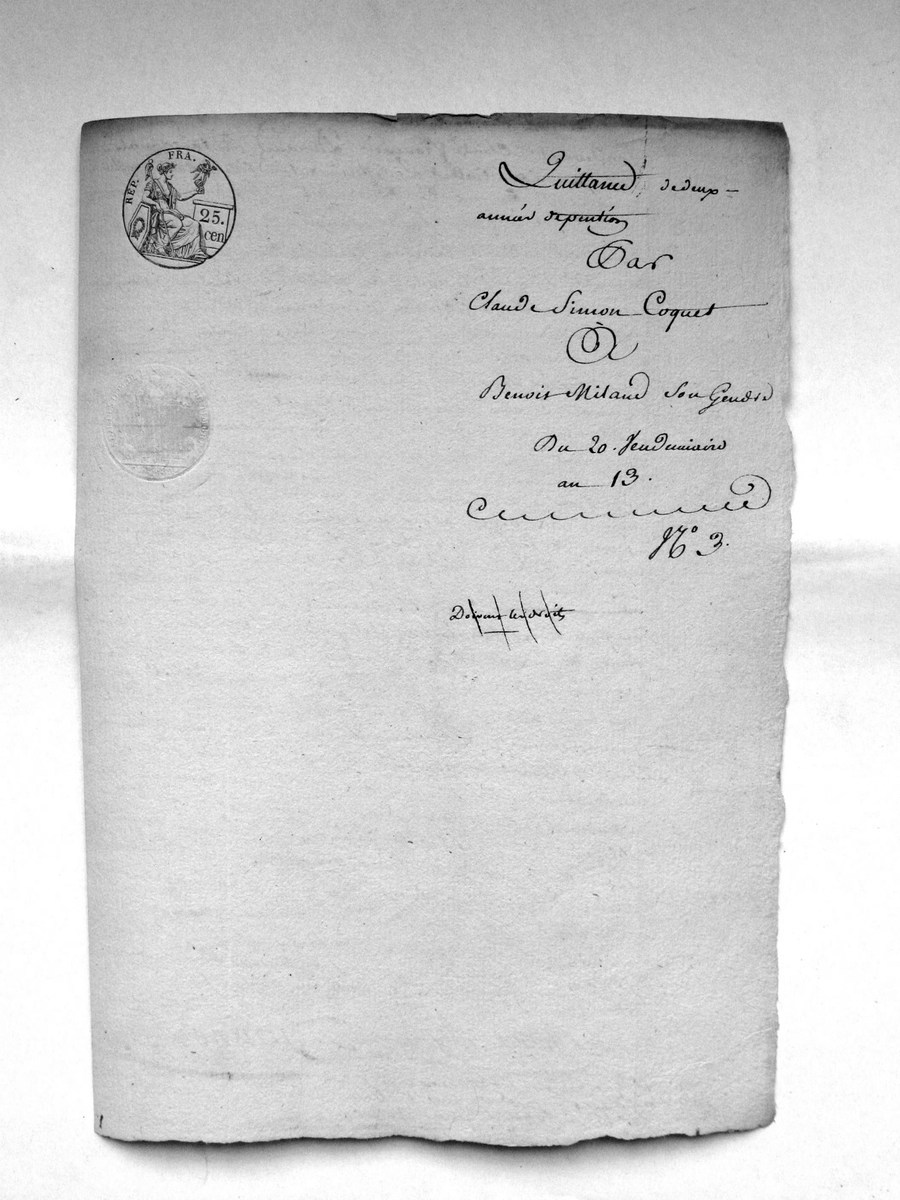 RÉP. FRA.
25.
cen.
Quittance de deux
années de pention
Par
Claude Simon Coquet
À
Benoit Miland Son Gendre
Du 20. Vendemiaire
an 13.
N° 3.
Doivent les droits